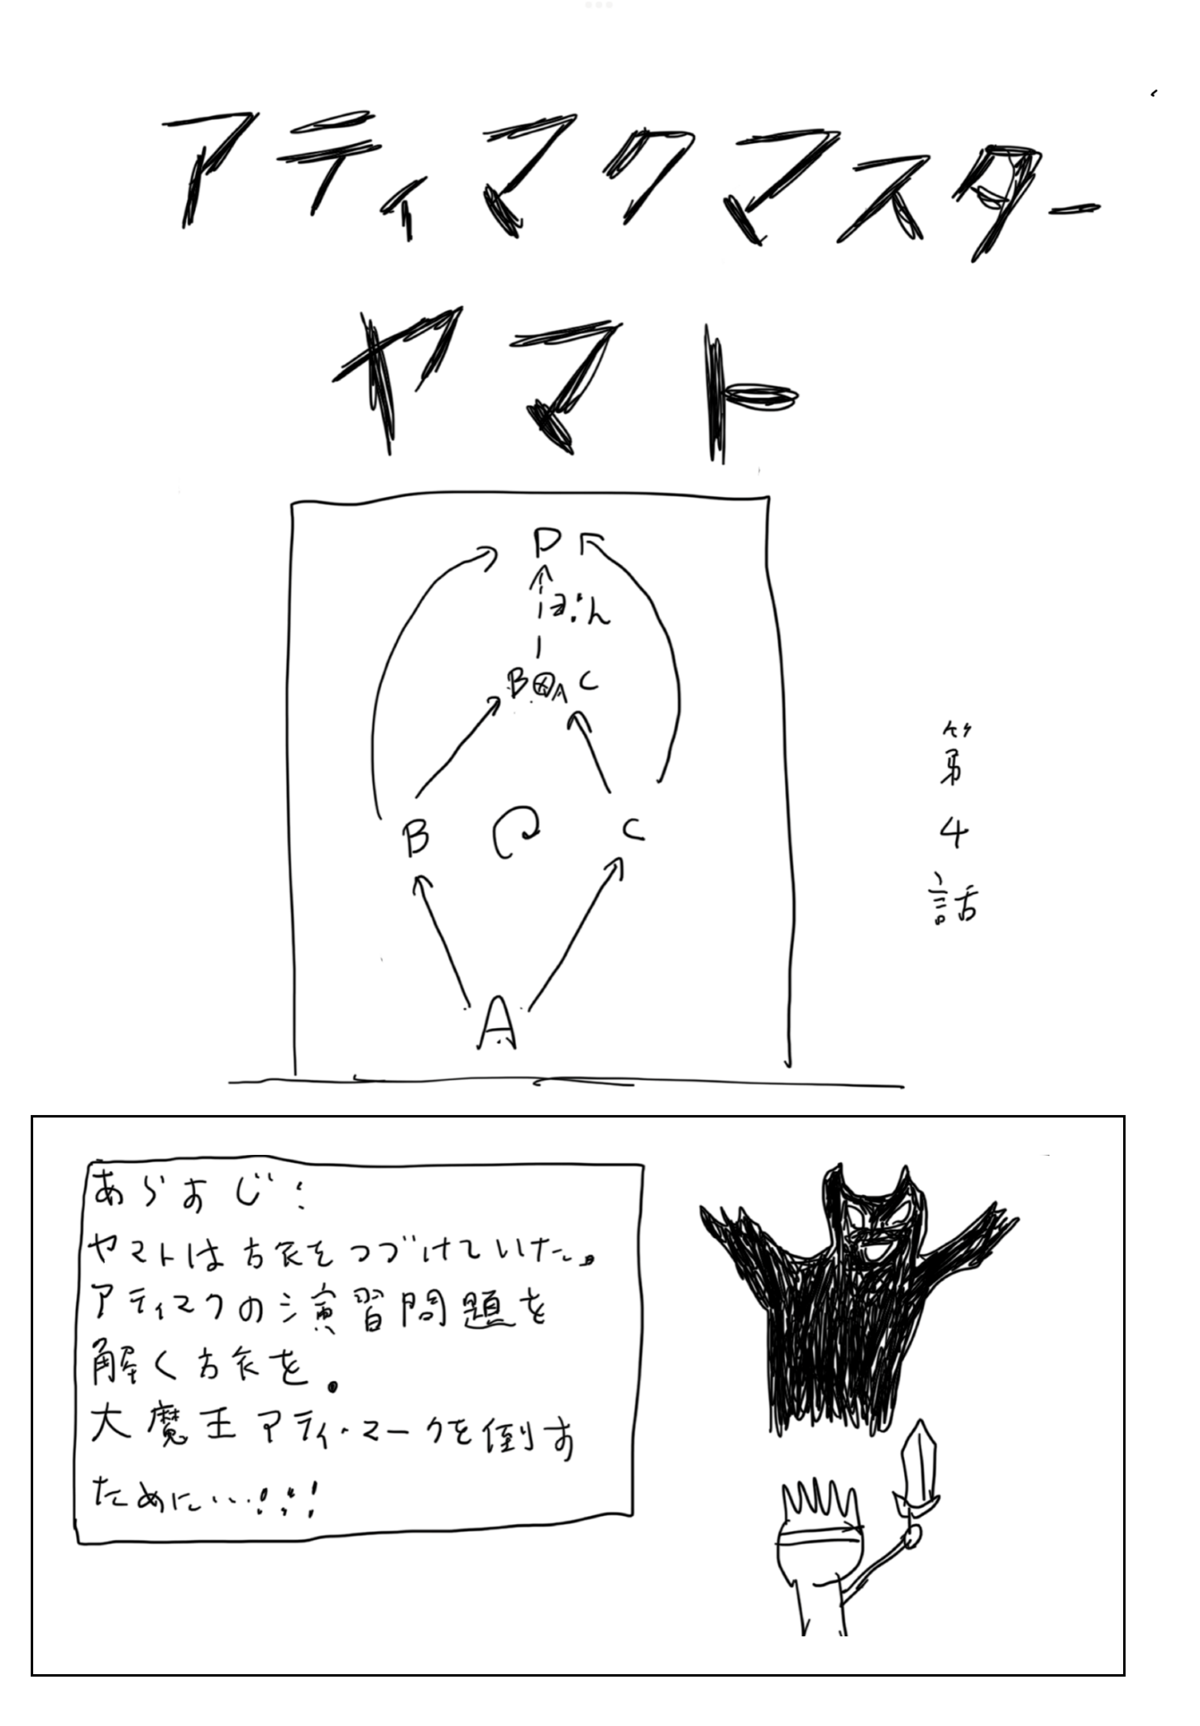 アティマクマスター
ヤマト
D
ぽん
B⊗A C
B
C
A
第4話
あらすじ:
ヤマトは旅をつづけていた。
アティマクの演習問題を
解く旅を。
大魔王アティ・マークを倒す
ために…!!!